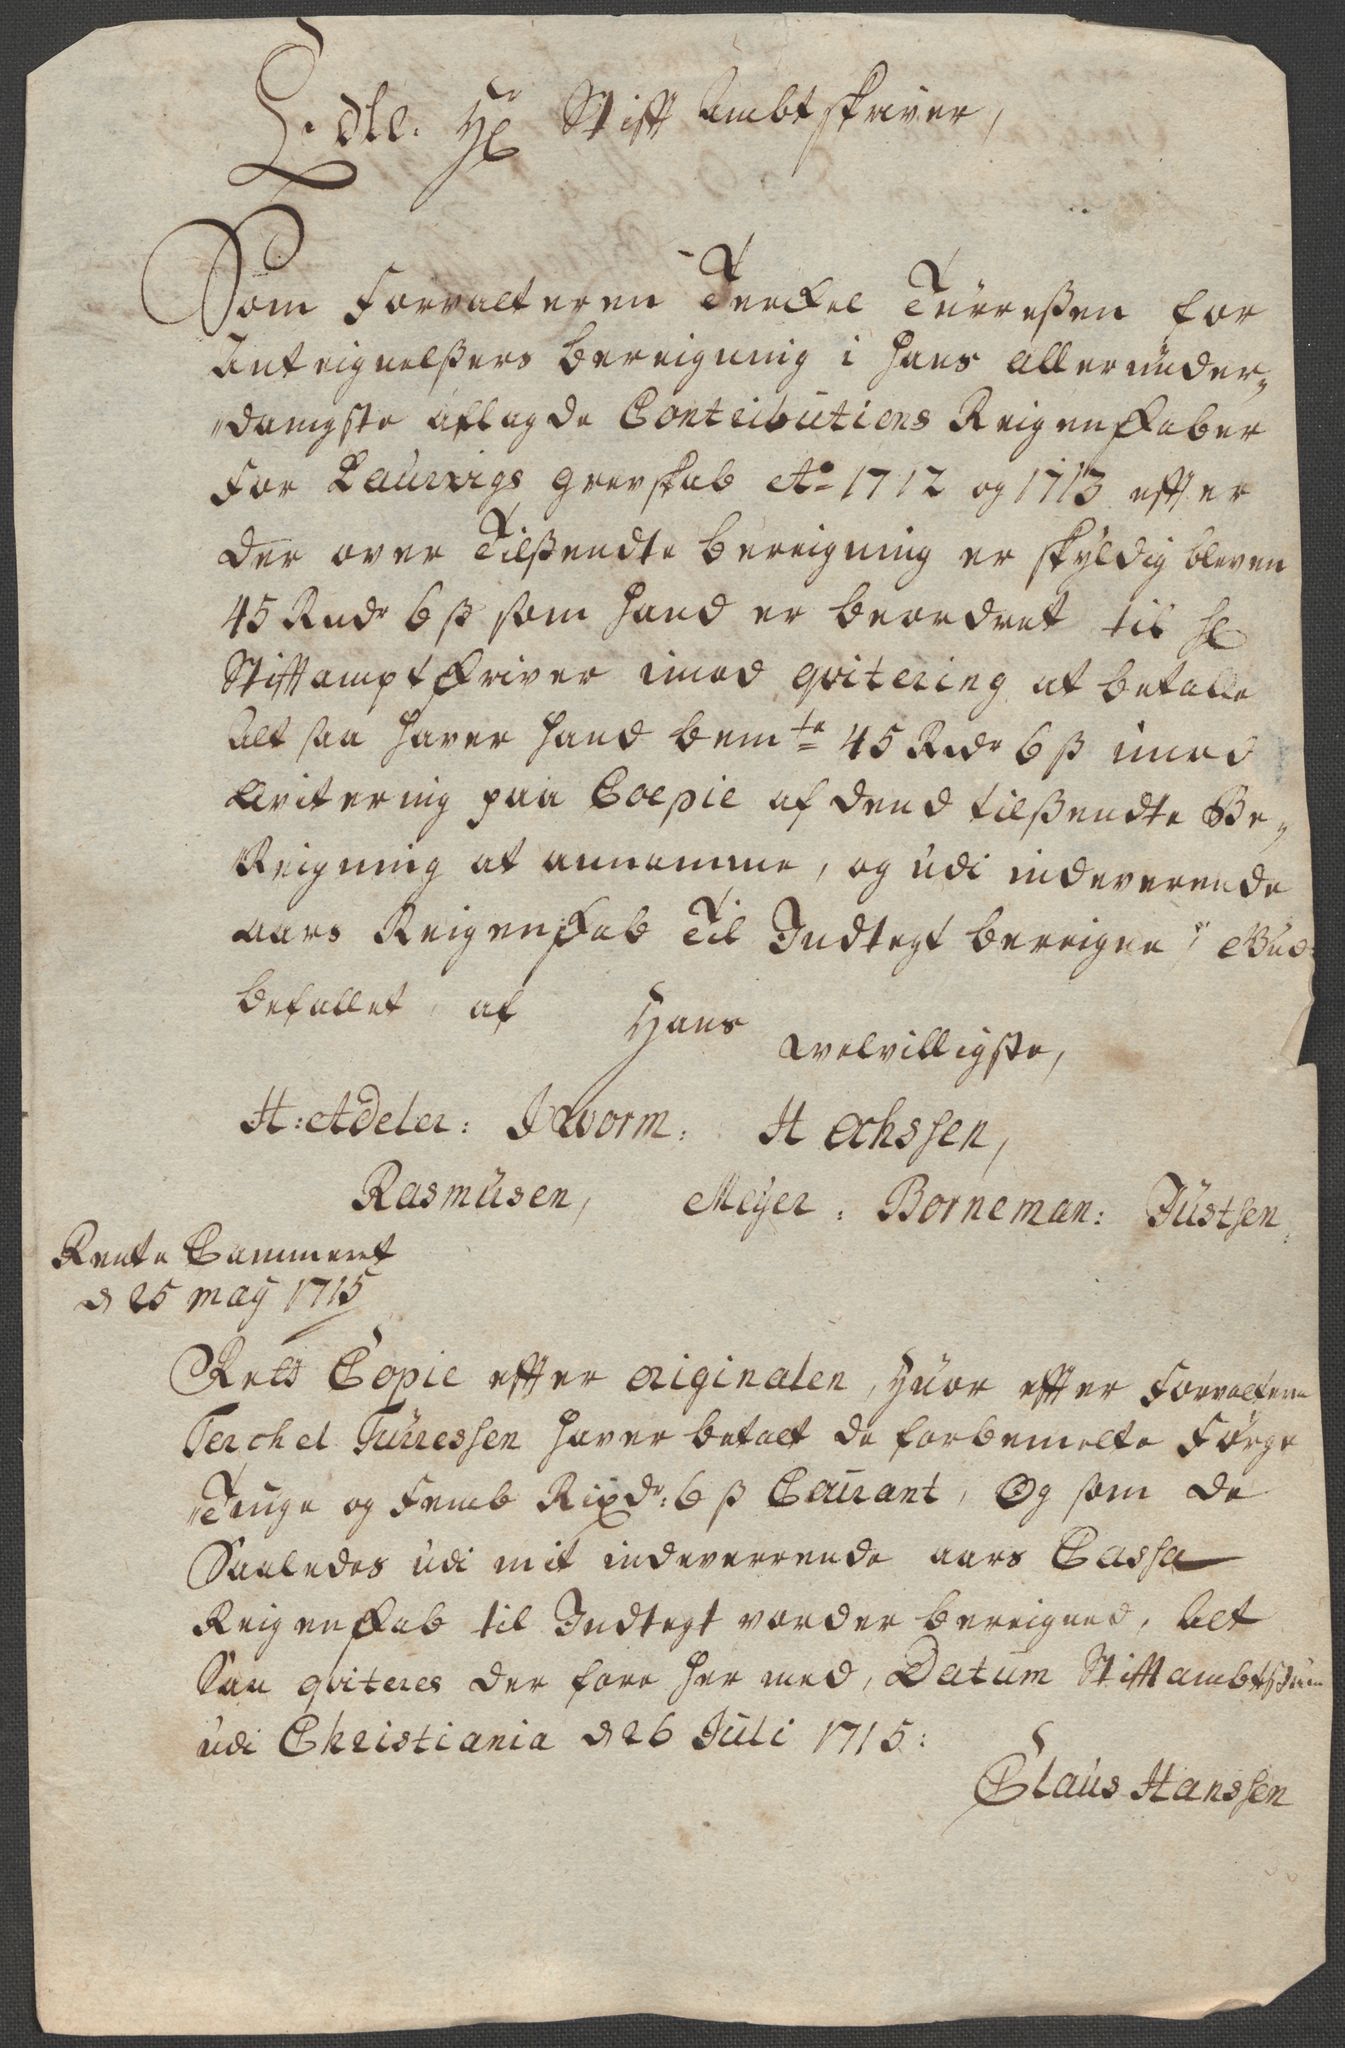 Edle. Hr Stift Ambtskriver,
Som Forvalteren Terkel Türreßen for
Anteignelßers bereigning i hans alleründer-
danigste aflagde Contributions Reigenskaber
for Laurvigs grevskab Ao 1712 og 1713 efter
der over Tilßendte bereigning er skyldig bleven
45 Rixdr 6 ß som hand er beordret til Hr
Stiftamptskriver imod qvitering at betalle
Alt saa haver hand bemte 45 Rixdr 6 ß imod
Qvitering paa Coepie af dend tilßendte Be-
Reigning at annamme, og udi indeverende
aars Reigenskab Til Indtegt bereigne, Gud
befallet af Hans
velvilligste,
H: Adeler: J Worm: H Ochssen,
Rasmüsen, Meyer: Borneman: Jüstsen:
Rente Cammeret
d 25 maij 1715
Rett Copie efter originalen, hvor efter Forvalteren
Terchel Türressen haver betalt de forbemelte Förge
Tiuge og Femb Rixdr: 6 ß Courant, Og som de
Saaledes udi mit indeverrende aars Cassa
Reigenskab til Indtegt vorder bereigned, Alt
Saa qviteres der fore her med, Datum Stiftambtstuen
udi Christiania d 26 Juli 1715:
Claus Hanssen